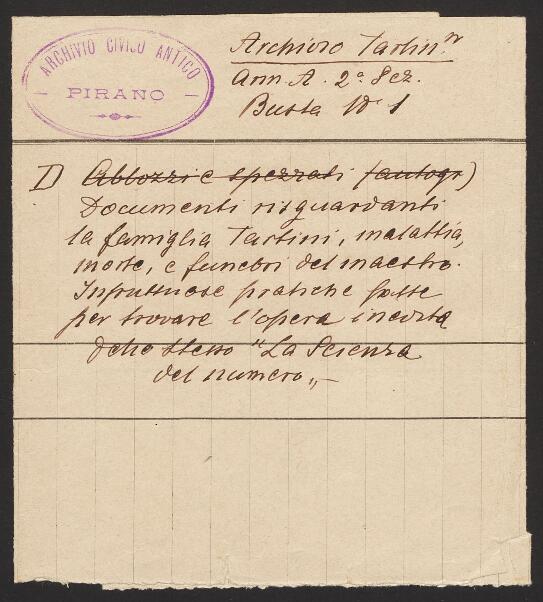 ARCHIVIO CIVICO ANTICO
PIRANO
Archivio Tartin.
Ann. A. 2ª Sez.
Busta Nº 1
I) Abbozzi e spezzati (autogr)
Documenti risguardanti
la famiglia Tartini, malattia,
morte, e funebri del maestro.
Infruttuose pratiche fatte
per trovare l'opera inedita
dello stesso "La Scienza
del numero„ —